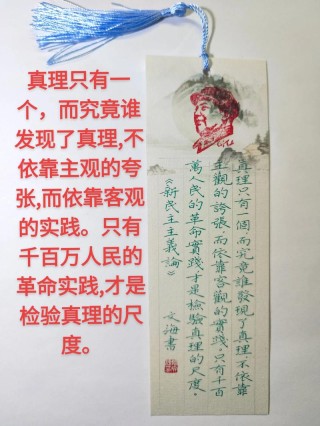 真理只有一
个，而究竟谁
发现了真理,不
依靠主观的夸
张,而依靠客观
的实践。只有
千百万人民的
革命实践,才是
检验真理的尺
度。
真理只有一個,而究竟誰發現了真理,不依靠
主觀的誇張,而依靠客觀的實踐。只有千百
萬人民的革命實踐,才是檢驗真理的尺度。
《新民主主義論》
文海書